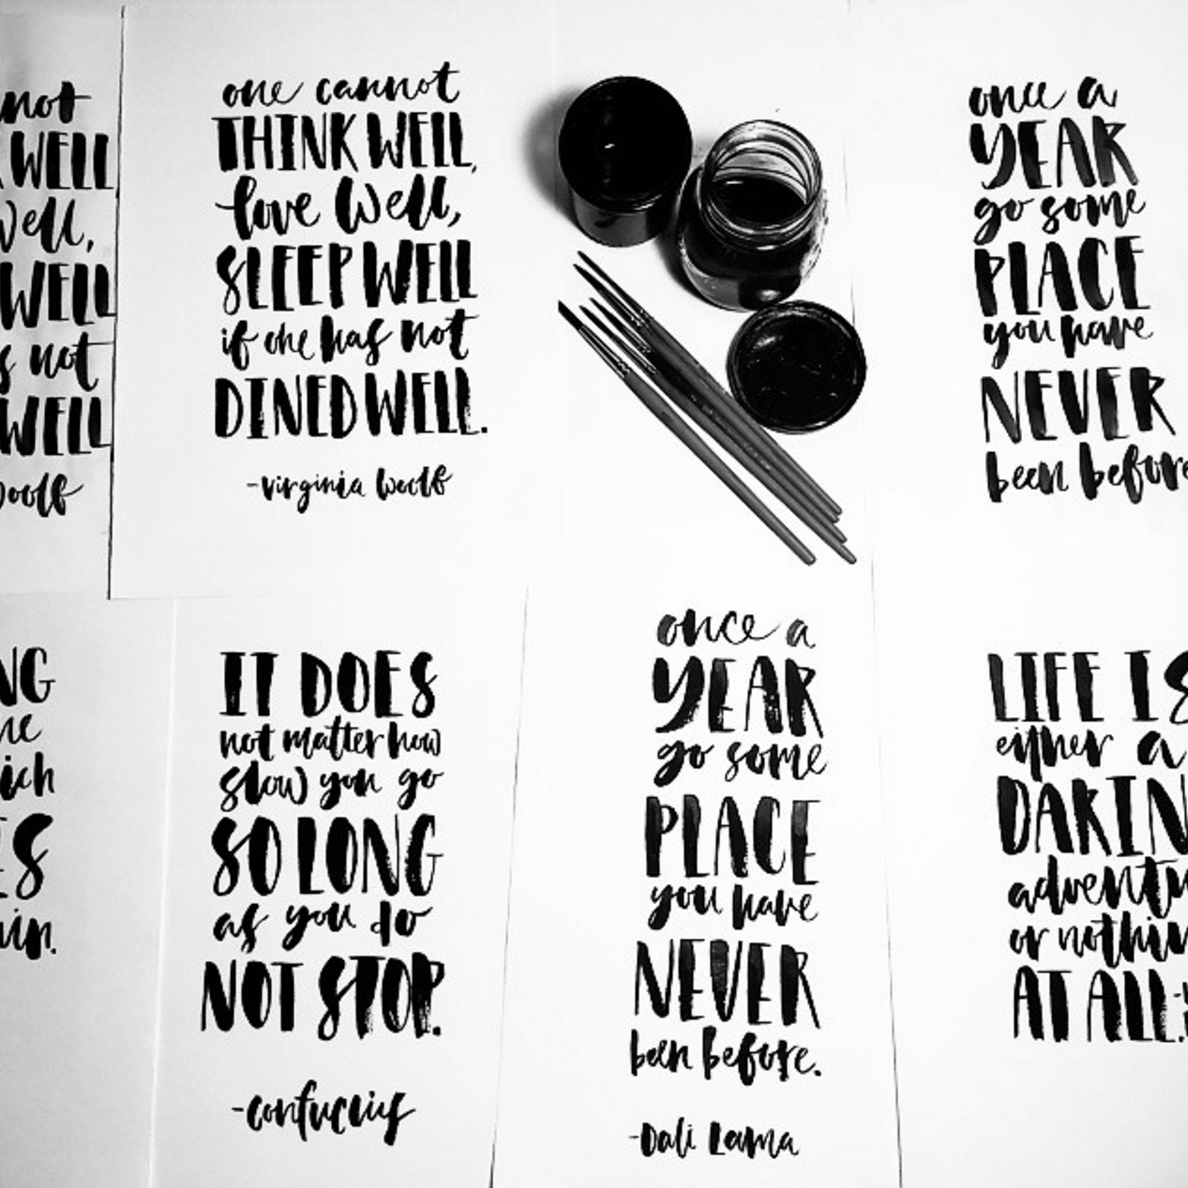 not
WELL
well,
WELL
not
WELL
one cannot
THINK WELL,
love well,
SLEEP WELL
if one has not
DINED WELL.
-virginia woolf
once a
YEAR
go some
PLACE
you have
NEVER
been before
IT DOES
not matter how
slow you go
SO LONG
as you do
NOT STOP.
-confucius
once a
YEAR
go some
PLACE
you have
NEVER
been before.
-Dali Lama
LIFE IS
either a
DARIN
adventu
or nothin
AT ALL.